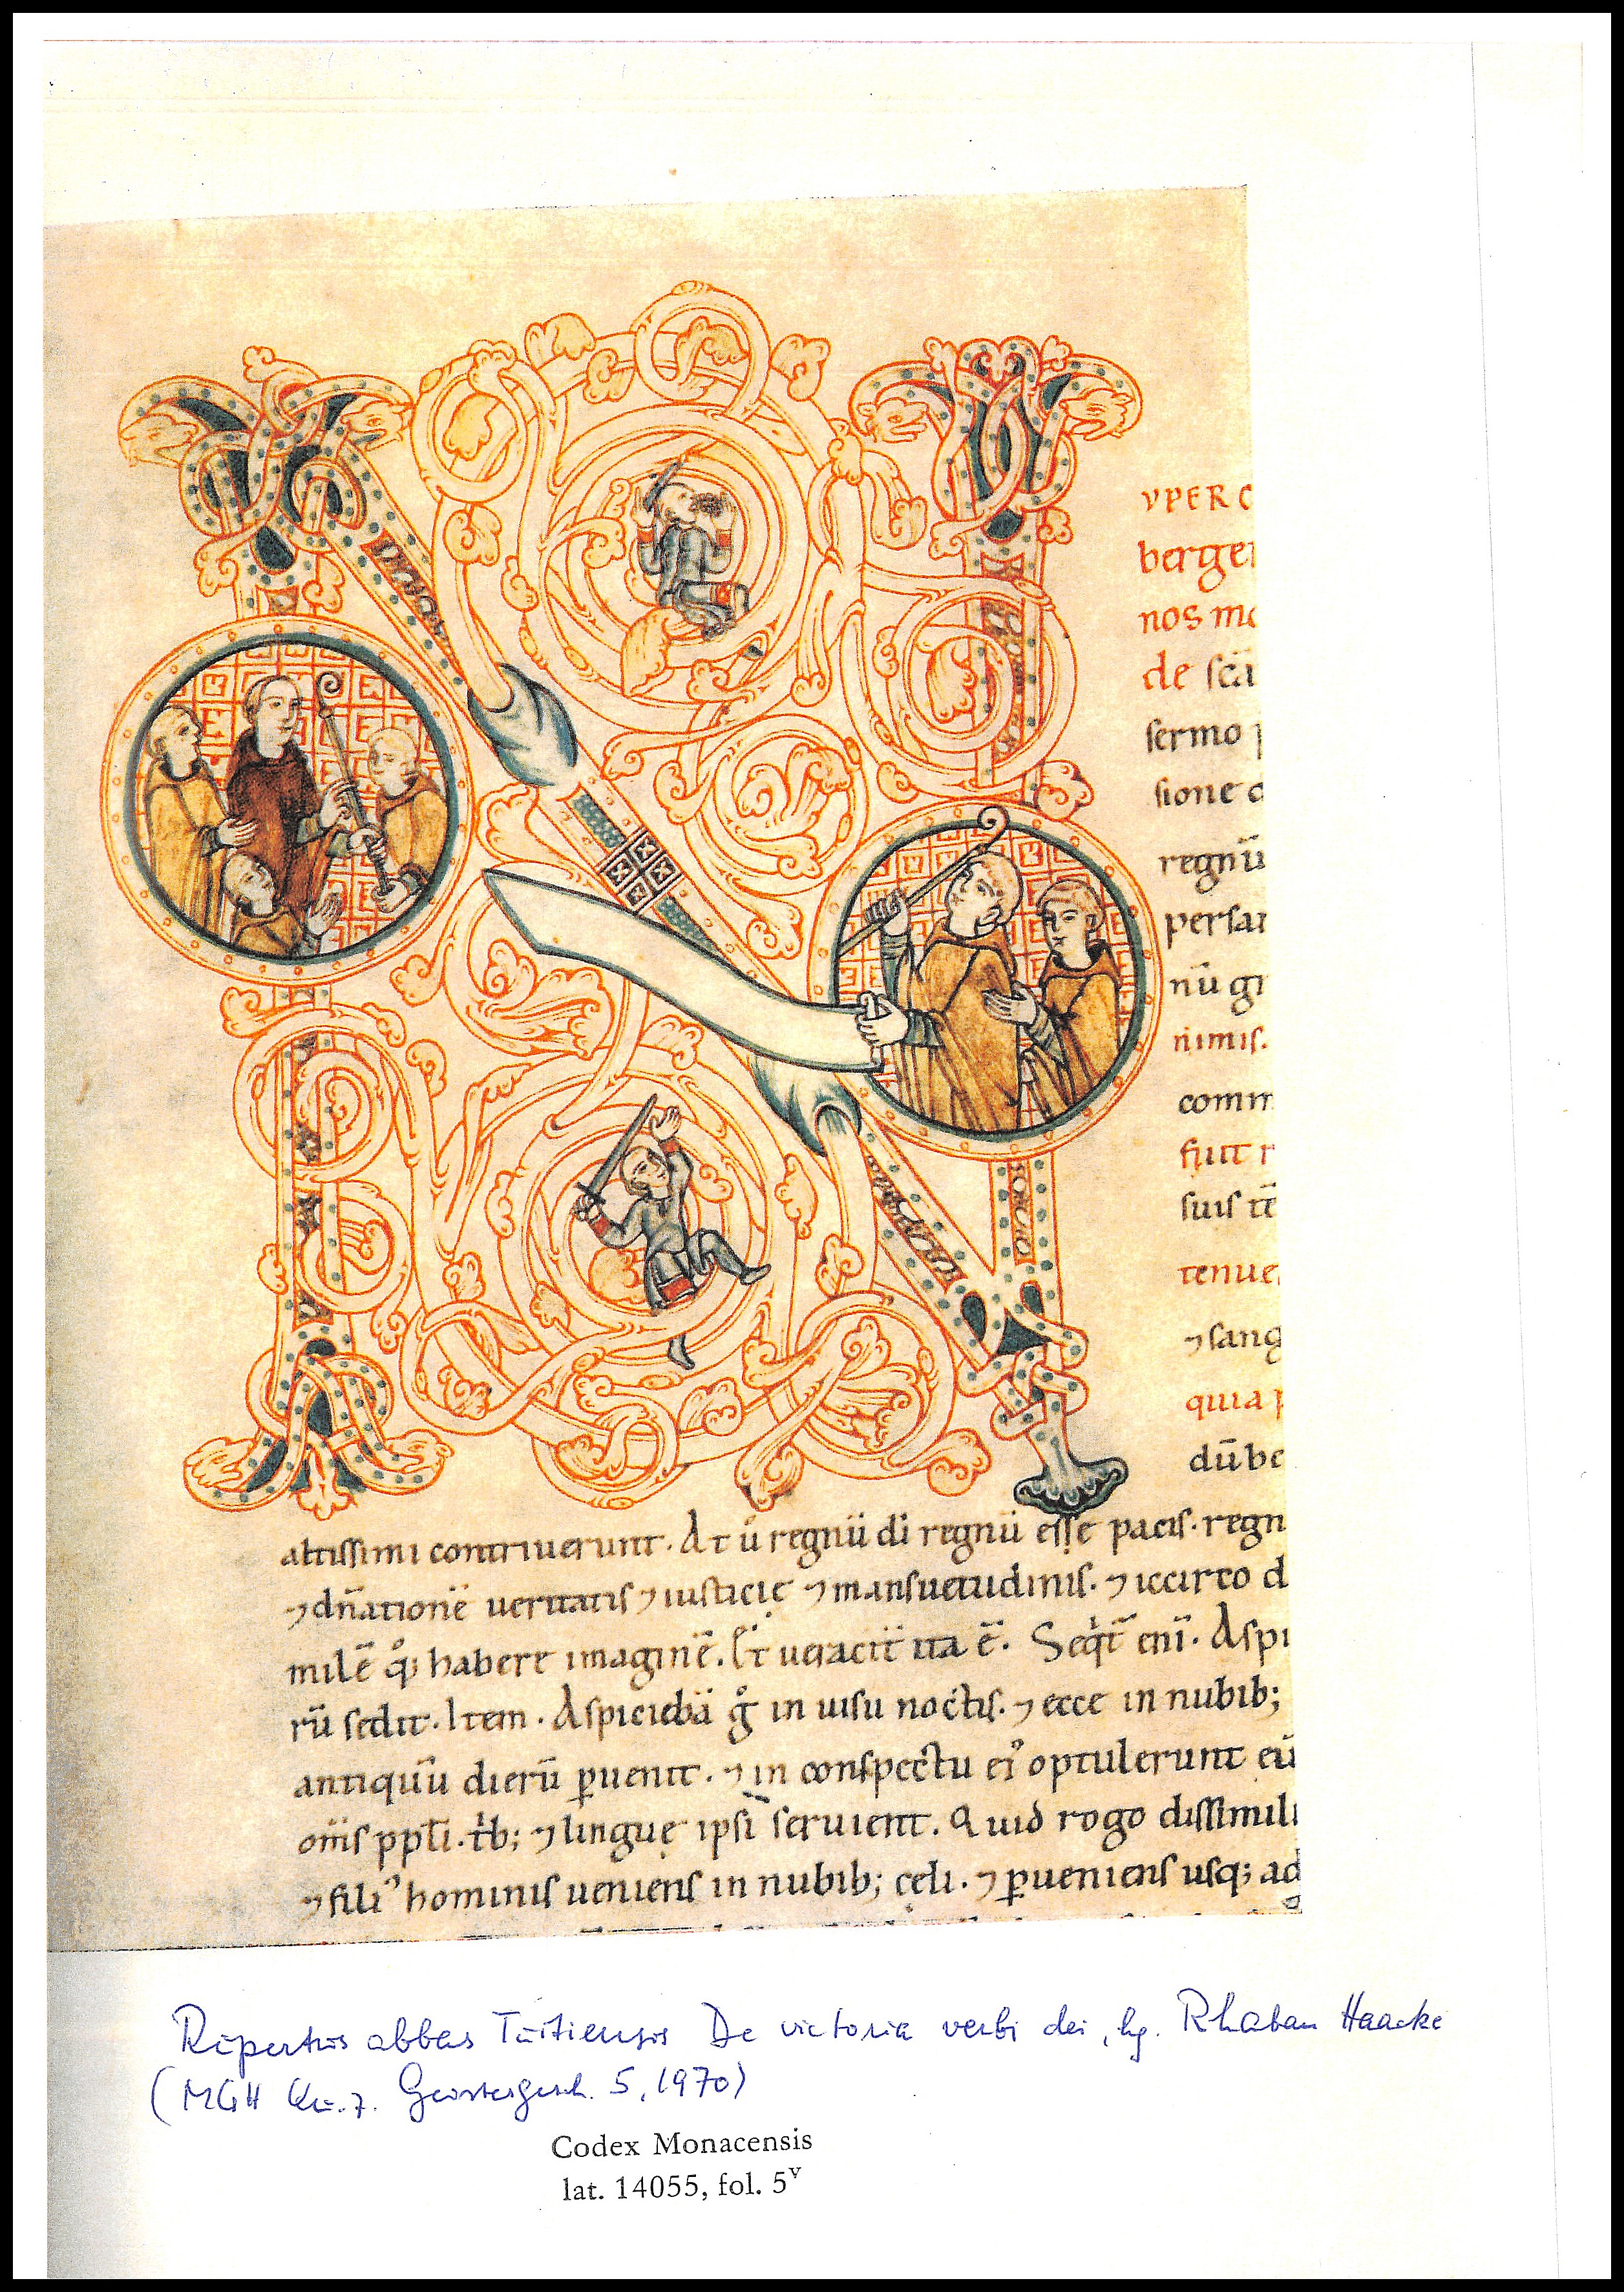 VPER C
berge
nos mo
de scā
sermo p
sione
regnū
persar
nū gr
nimis.
comm
fuit r
suis tē
tenue
⁊ sang
quia p
dū be
altissimi contriuerunt. At ů regnū dī regnū esse pacis. regn
⁊ dn̄atione ueritatis ⁊ iusticię ⁊ mansuetudinis. ⁊ iccirco d
milē habere imaginē. Et ueracit̄ ita ē. Seqit̄ enī. Aspi
rū sedit. Item. Aspiciebā g̊ in uisu noctis. ⁊ ecce in nubib;
antiquū dierū ꝑuenit. ⁊ in conspectu ei᾿ optulerunt eū
om̄s ppl̄i. tb; ⁊ linguę ipsi seruient. Quid rogo dissimili
⁊ fili᾿ hominis ueniens in nubib; cęli. ⁊ ꝑueniens usq; ad
Rupertus abbas Tuitiensis De victoria verbi dei, hg. Rhaban Haacke
(MGH Qu. z. Geistesgesch. 5, 1970)
Codex Monacensis
lat. 14055, fol. 5v